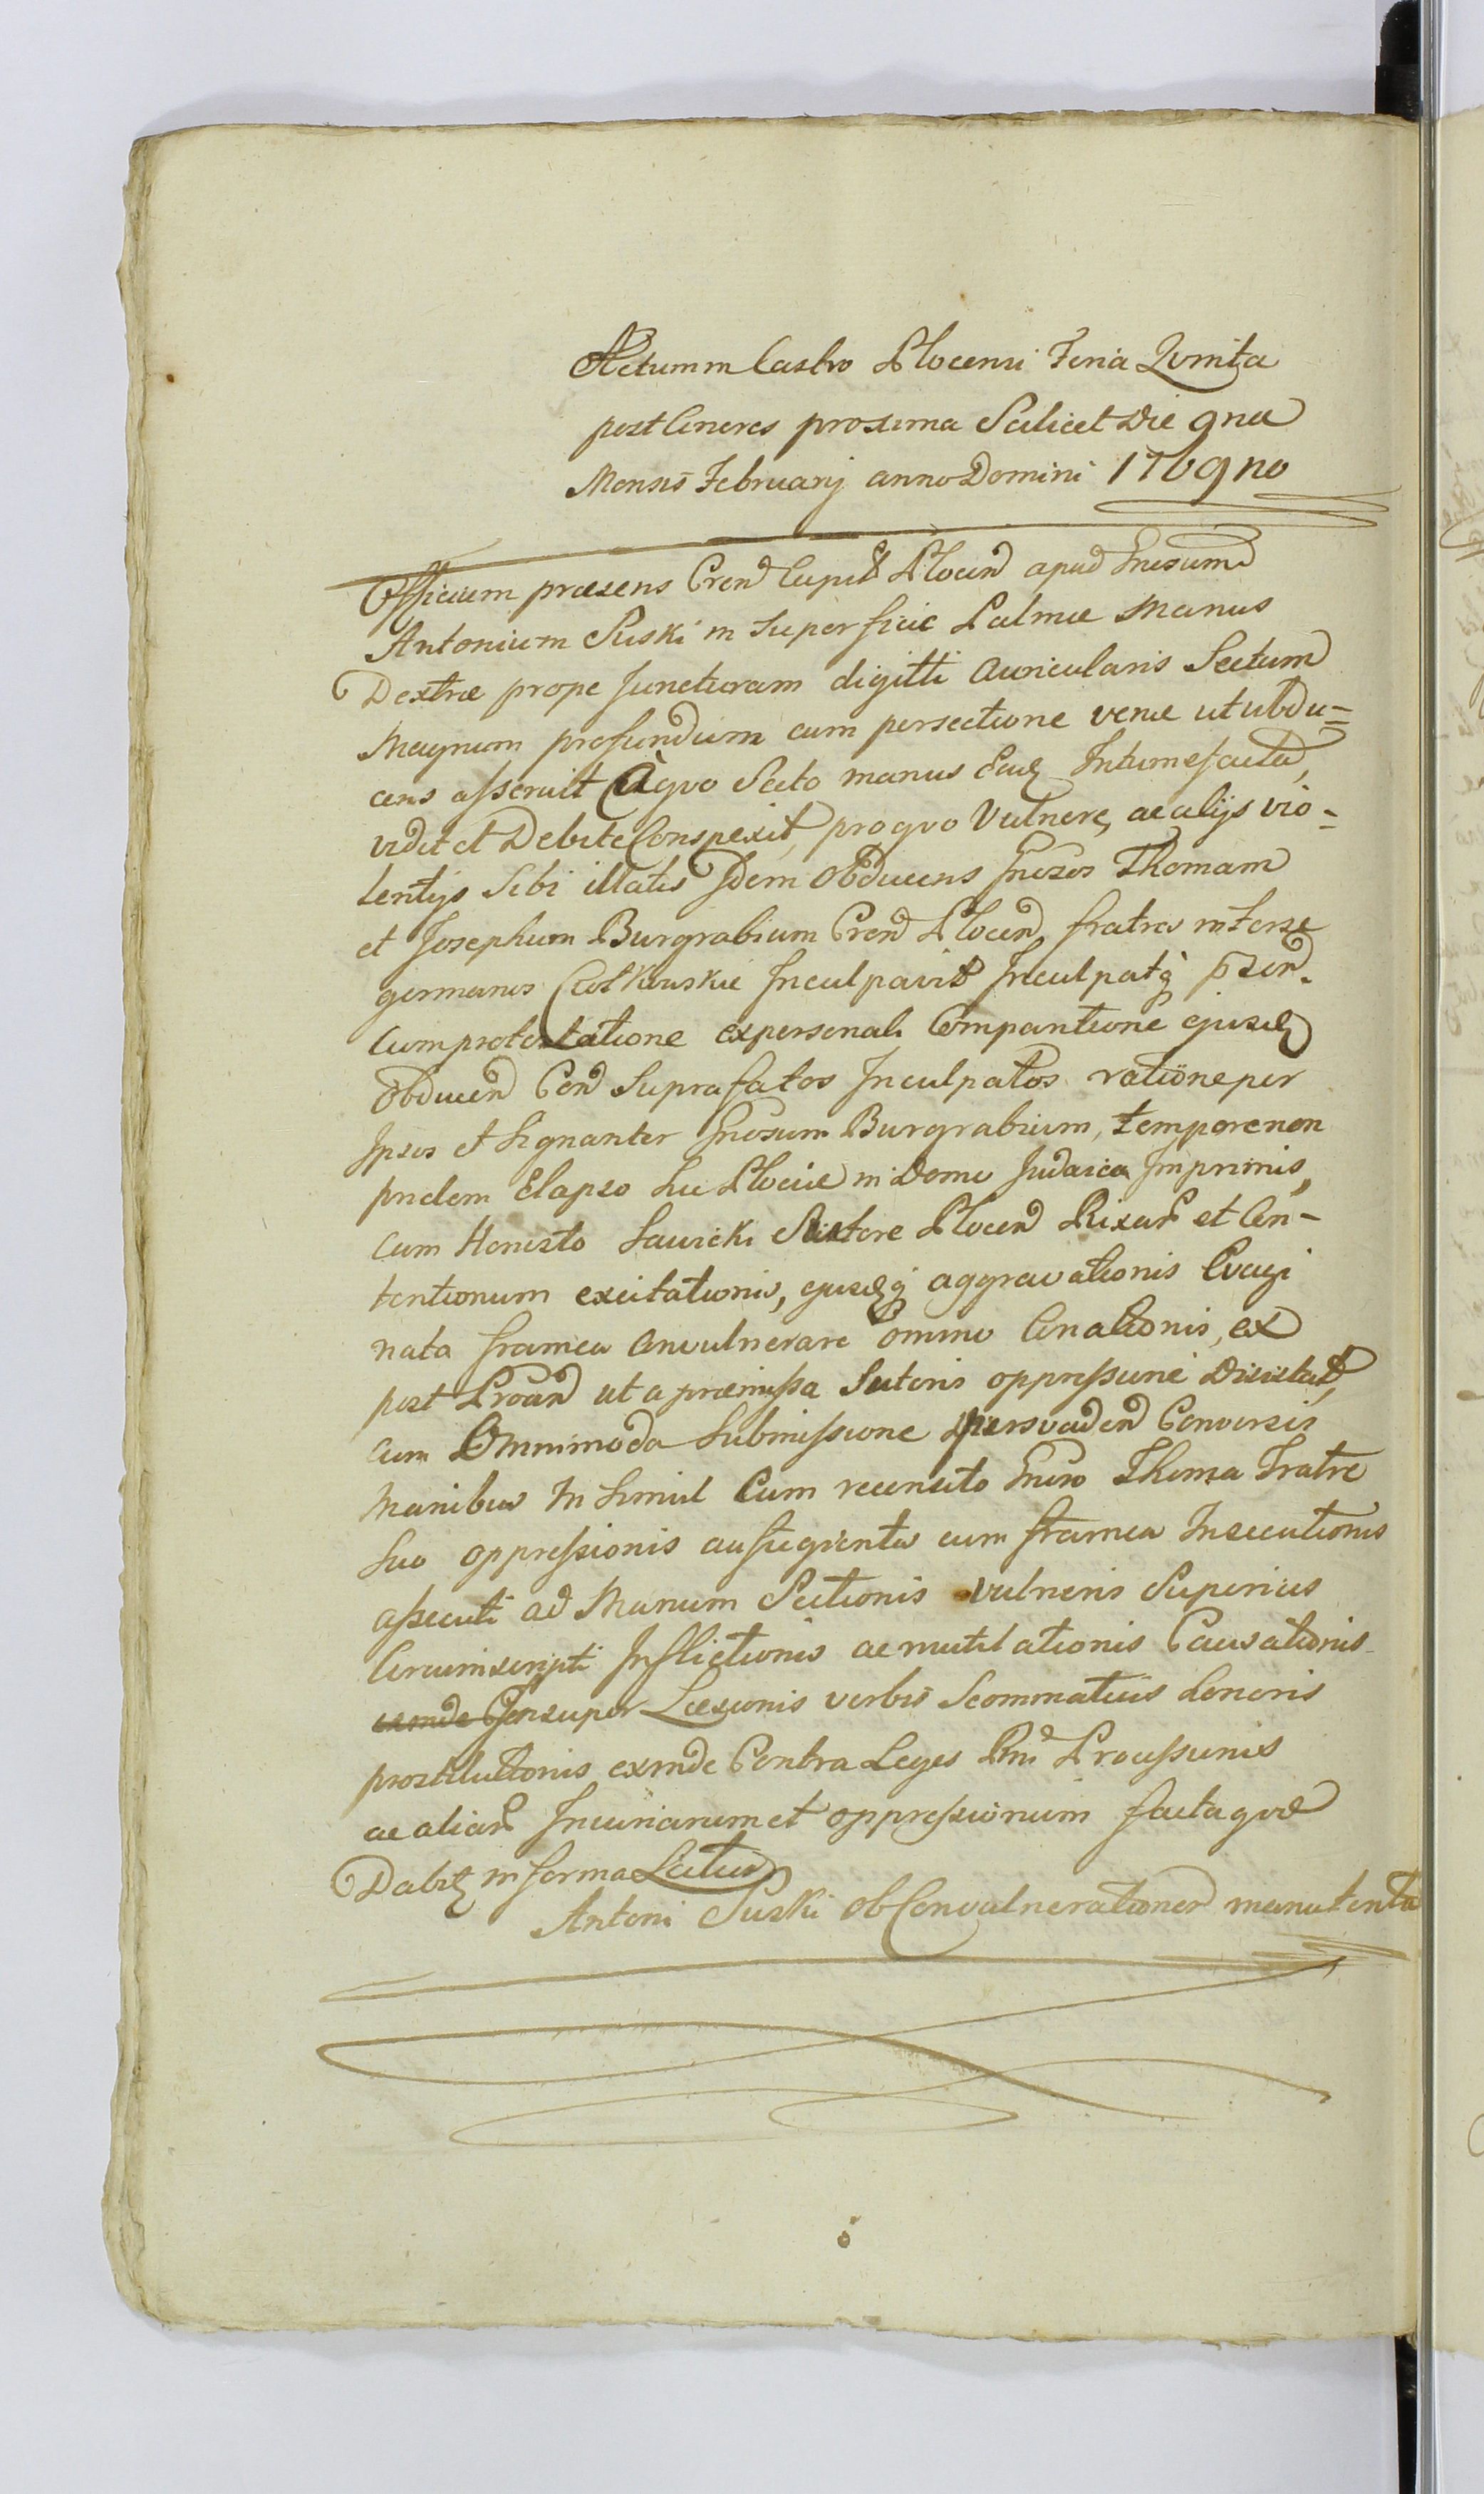 Actum in Castro Plocensi Feria Qvinta
post Cineres proxima Scilicet Die 9na
Mensis Februarij anno Domini 1769no
Officium præsens Cren Capit Plocen apud Gnesum
Antonium Suski in superficie Palmæ Manus
Dextræ prope Juncturam digitti Auricularis Sectum
Magnum profundum cum persectione venæ ut ubdu=
cens asseruit à qvo Secto manus Ead Intumefacta,
vidit et Debite Conspexit, pro qvo Vulnere, ac alijs vio-
lentijs Sibi illatis Idem Obducens Gnesos Thomam
et Josephum Burgrabium Cren Plocen fratres inter se
germanos Ciołkowskie Inculpavit Inculpatq
Cum protestatione ex personali Comparitione ejusd
Obducen Con Suprafatos Inculpatos ratione per
Ipsos et Signanter Gnosum Burgrabium, tempore non
pridem Elapso hic Plociæ in Domo Judaica Imprimis,
Cum Honesto Sawicki Sutore Plocen Rixar et Con-
tentionum excitationis, ejusdq aggravationis Evagi
nata framea Convulnerare omnino Conationis, ex
post Proan ut a præmissa Sutoris oppressione
cum Omnimoda Submissione persvaden Conversis
Manibus In simul Cum recensito Gnoso Thoma Fratre
Suo oppressionis aufugientis cum framea Insecutionis
assecuti ad Manum Sectionis vulneris Superius
Circumscripti Inflictionis ac mutilationis Causationis
exinde Insuper Læsionis verbis Scommaticis honoris
prostitutionis exinde Contra Leges Rni Processionis
ac aliar Iniuriarum et oppressionum facta qvæ
Dabit in forma Latius
Antoni Suski ob Convulnerationem manu tenta